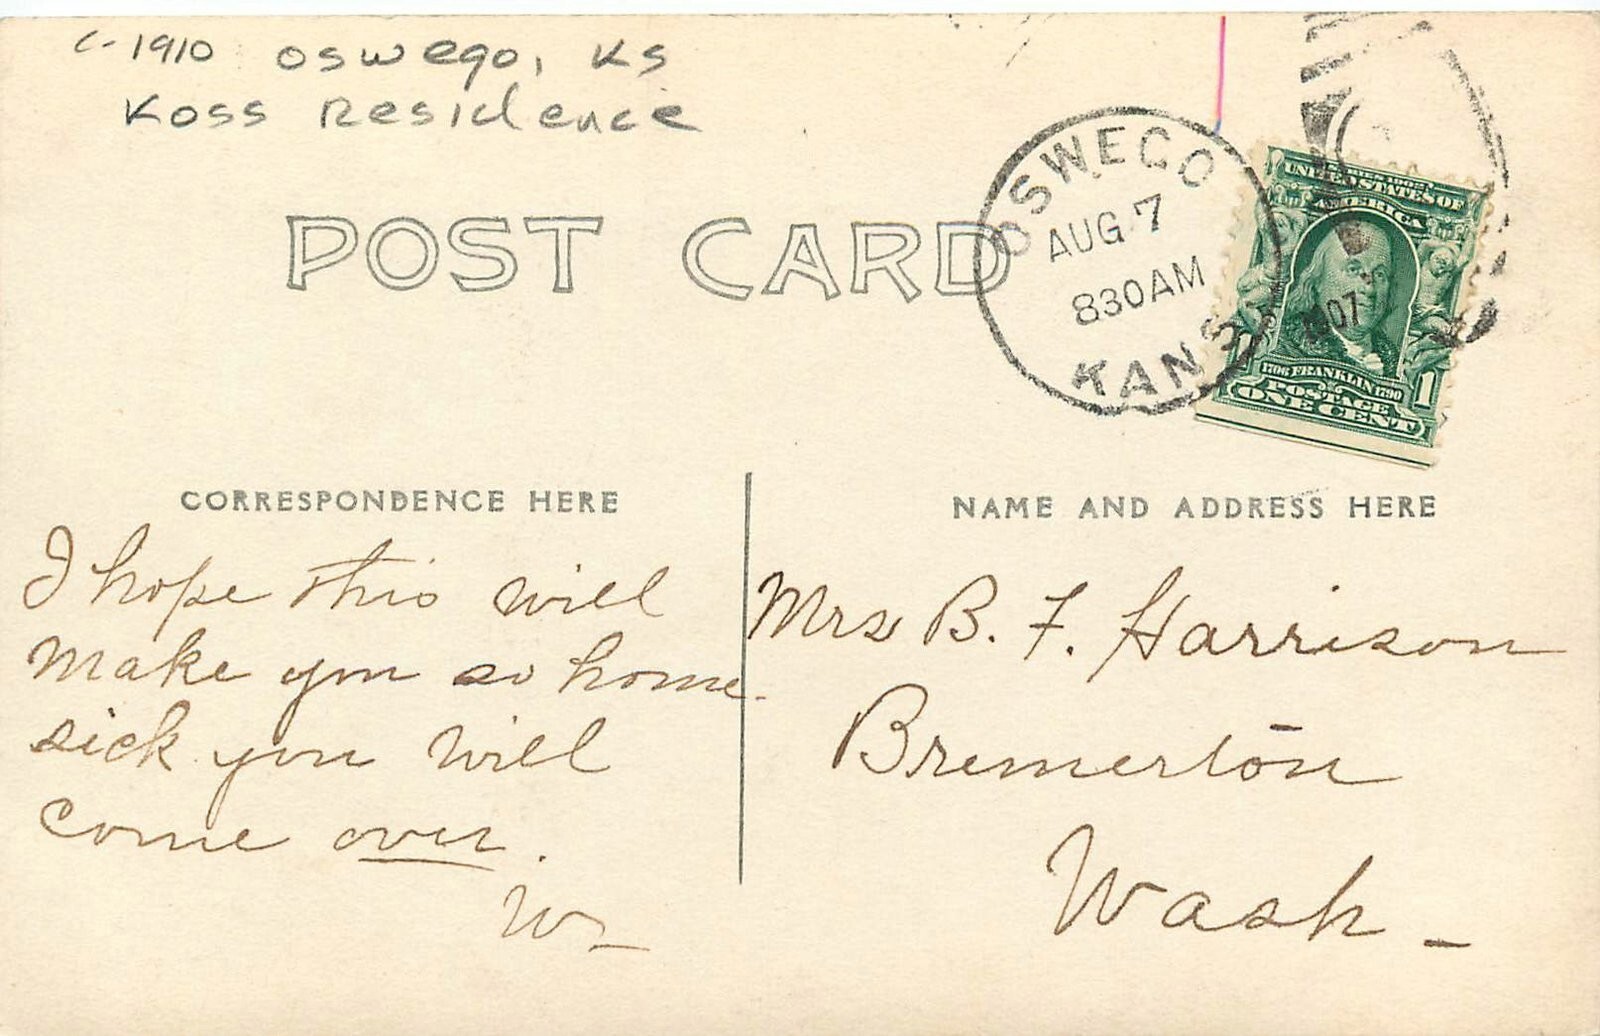 c-1910 Oswego, KS
Koss Residence
POST CARD
OSWEGO
AUG 7
830AM
KANS
1907
SERIES 1902
UNITED STATES OF
AMERICA
1706 FRANKLIN 1790
POSTAGE
1 ONE CENT 1
CORRESPONDENCE HERE
NAME AND ADDRESS HERE
I hope this will
make you so home-
sick you will
come over.
W-
Mrs B. F. Harrison
Bremerton
Wash-